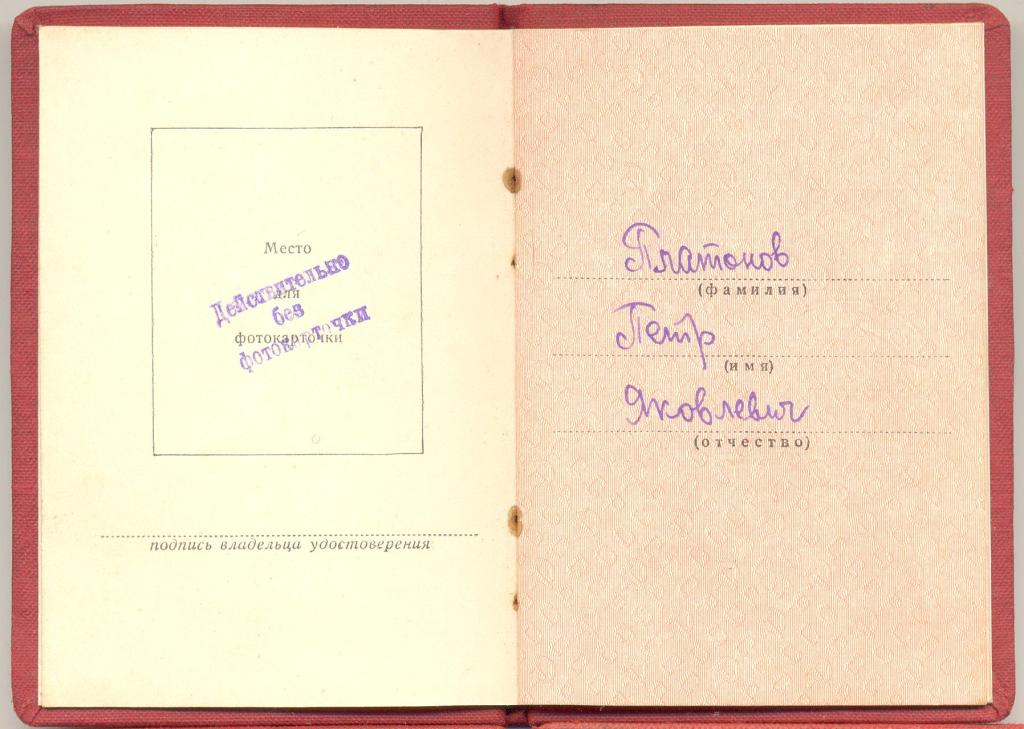 Место
для
фотокарточки
Действительно
без
фотокарточки
подпись владельца удостоверения
Платонов
(фамилия)
Петр
(имя)
Яковлевич
(отчество)